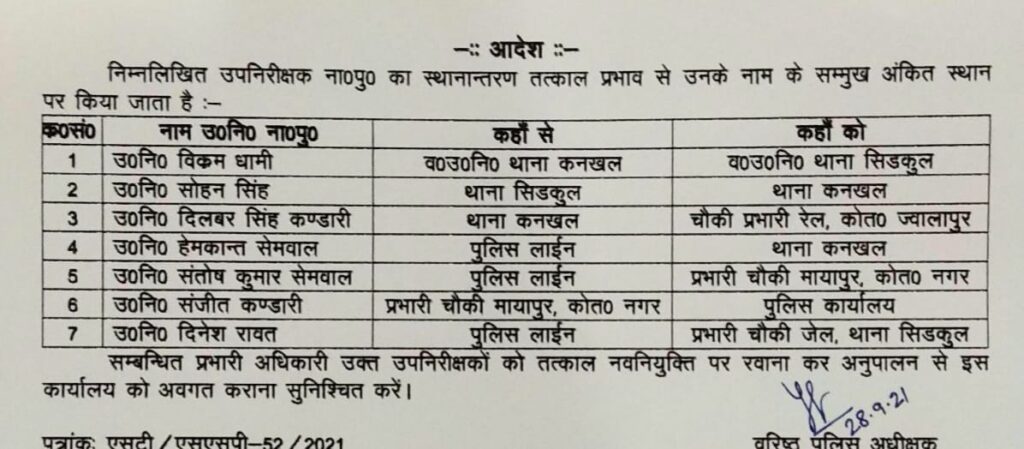 –:: आदेश ::–
निम्नलिखित उपनिरीक्षक ना0पु0 का स्थानान्तरण तत्काल प्रभाव से उनके नाम के सम्मुख अंकित स्थान
पर किया जाता है :–
क0सं0 नाम उ0नि0 ना0पु0 कहाँ से कहाँ को
1 उ0नि0 विक्रम धामी व0उ0नि0 थाना कनखल व0उ0नि0 थाना सिडकुल
2 उ0नि0 सोहन सिंह थाना सिडकुल थाना कनखल
3 उ0नि0 दिलबर सिंह कण्डारी थाना कनखल चौकी प्रभारी रेल, कोत0 ज्वालापुर
4 उ0नि0 हेमकान्त सेमवाल पुलिस लाईन थाना कनखल
5 उ0नि0 संतोष कुमार सेमवाल पुलिस लाईन प्रभारी चौकी मायापुर, कोत0 नगर
6 उ0नि0 संजीत कण्डारी प्रभारी चौकी मायापुर, कोत0 नगर पुलिस कार्यालय
7 उ0नि0 दिनेश रावत पुलिस लाईन प्रभारी चौकी जेल, थाना सिडकुल
सम्बन्धित प्रभारी अधिकारी उक्त उपनिरीक्षकों को तत्काल नवनियुक्ति पर रवाना कर अनुपालन से इस
कार्यालय को अवगत कराना सुनिश्चित करें।
28.9.21
पत्रांकः एसटी/एसएसपी–52/2021 वरिष्ठ पुलिस अधीक्षक